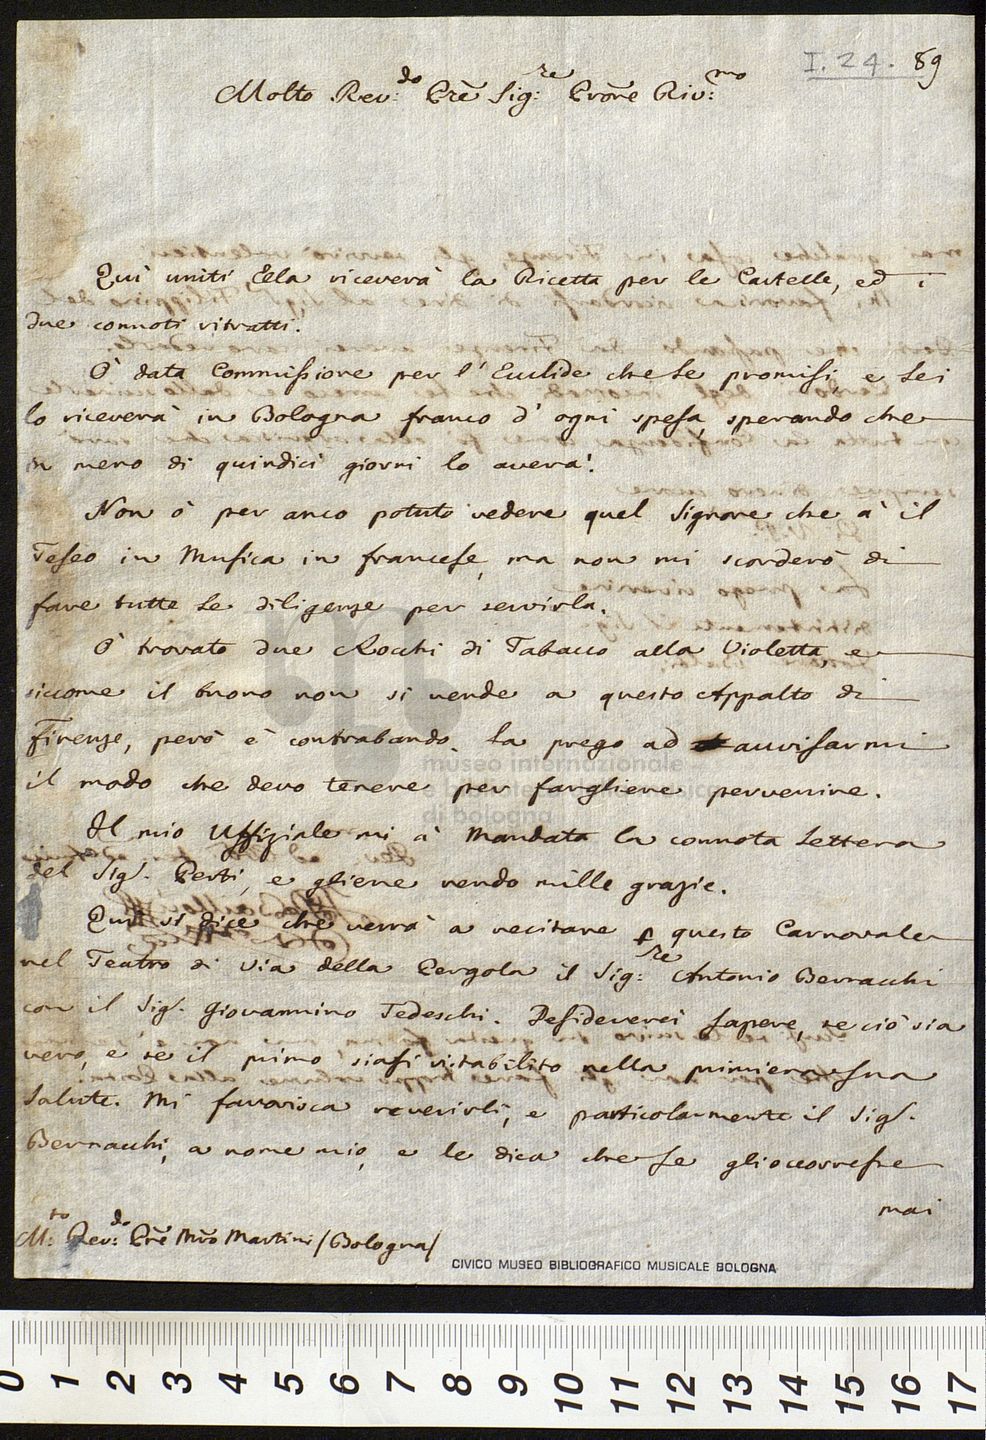 I. 24. 89
Molto Rev:do Prẽ Sig:re Prone Riv:mo
Qui uniti Ella riceverà la Ricetta per le Cartelle, ed i
due connoti ritratti.
Ò data Commissione per l'Euclide che Le promisi, e Lei
lo riceverà in Bologna franco d'ogni spesa, sperando che
in meno di quindici giorni lo averà.
Non ò per anco potuto vedere quel Signore che à il
Teseo in Musica in francese, ma non mi scorderò di
fare tutte le diligenze per servirla.
Ò trovato due Rocchi di Tabacco alla Violetta, e
siccome il buono non si vende a questo Appalto di
Firenze, però è contrabando. La prego ad avvisarmi
il modo che devo tenere per fargliene pervenire.
Il mio Uffiziale mi à mandata la connota Lettera
del Sig.r Perti, e gliene rendo mille grazie.
Quì si dice che verrà a recitare p questo Carnovale
nel Teatro di Via della Pergola il Sig:re Antonio Bernacchi
con il Sig.r Giovannino Tedeschi. Desidererei sapere, se ciò sia
vero, e se il primo siasi ristabilito nella primiera sua
salute. Mi favorisca reverirli, e particolarmente il Sig.r
Bernacchi, a nome mio, e le dica che se gli occorresse
mai
M:to Rev:do Prẽ Mrõ Martini /Bologna/
CIVICO MUSEO BIBLIOGRAFICO MUSICALE BOLOGNA
museo internazionale
e biblioteca della musica
di bologna
0 1 2 3 4 5 6 7 8 9 10 11 12 13 14 15 16 17